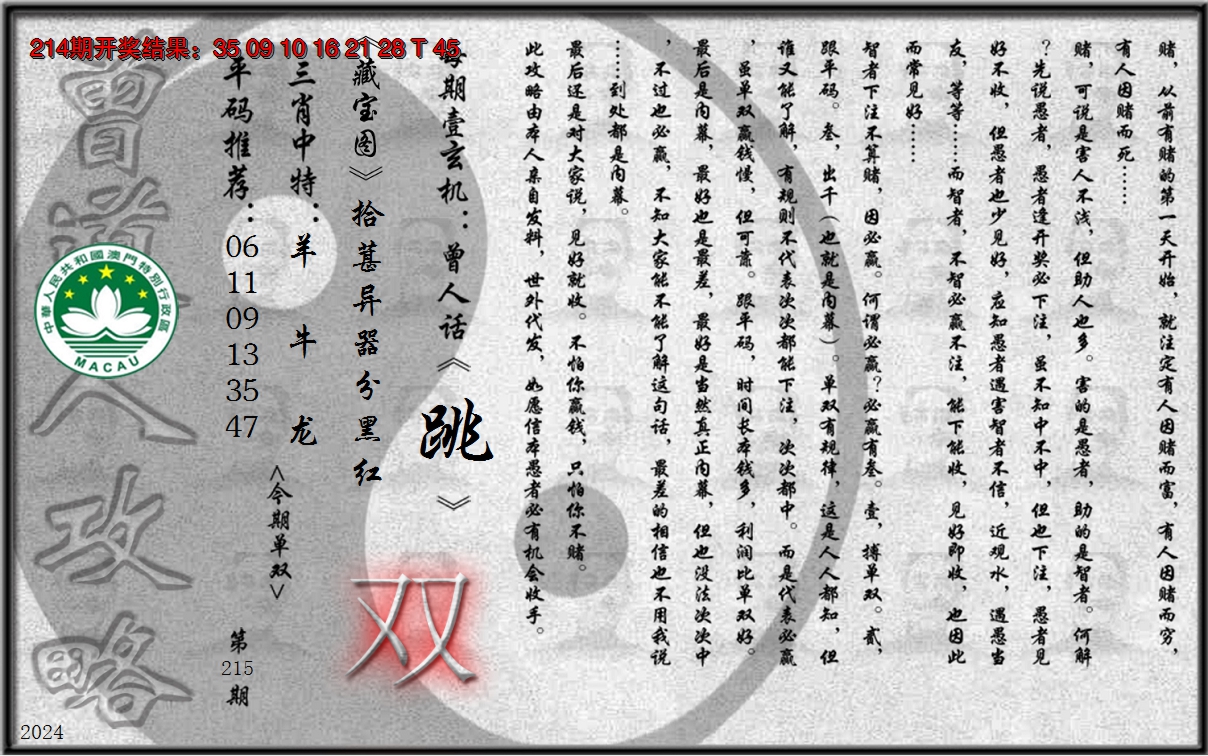 214期开奖结果：35 09 10 16 21 28 T 45
赌，从前有赌的第一天开始，就注定有人因赌而富，有人因赌而穷，
有人因赌而死……
赌，可说是害人不浅，但助人也多。害的是愚者，助的是智者。何解
？先说愚者，愚者逢开奖必下注，虽不知中不中，但也下注，愚者见
好不收，但愚者也少见好，应知愚者遇害智者不信，近观水，遇愚当
友，等等……而智者，不智必赢不注，能下能收，见好即收，也因此
而常见好……
智者下注不算赌，因必赢。何谓必赢？必赢有叁。壹，搏单双。贰，
跟平码。叁，出千（也就是内幕）。单双有规律，这是人人都知，但
谁又能了解，有规则不代表次次都能下注，次次都中。而是代表必赢
，虽单双赢钱慢，但可靠。跟平码，时间长本钱多，利润比单双好。
最后是内幕，最好也是最差，最好是当然真正内幕，但也没法次次中
，不过也必赢，不知大家能不能了解这句话，最差的相信也不用我说
……到处都是内幕。
最后还是对大家说，见好就收。不怕你赢钱，只怕你不赌。
此攻略由本人亲自发料，世外代发，如愿信本愚者必有机会收手。
每期壹玄机：曾人话《跳》
《藏宝图》拾葚异器分黑红
双
三肖中特：羊 牛 龙
<今期单双>
平码推荐：06 11 09 13 35 47
第215期
曾道人攻略
中華人民共和國澳門特別行政區
MACAU
2024